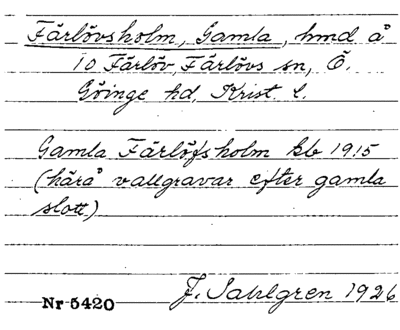 Färlövsholm, Gamla, hmd å
10 Färlöv, Färlövs sn, Ö.
Göinge hd, Krist. l.
Gamla Färlöfsholm kb 1915
(härå vallgravar efter gamla
slott)
J. Sahlgren 1926
Nr 5420